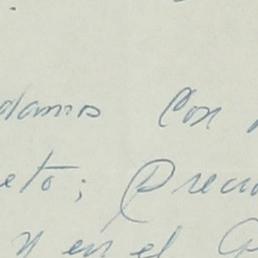 damos con
eto; Preciu
n en el